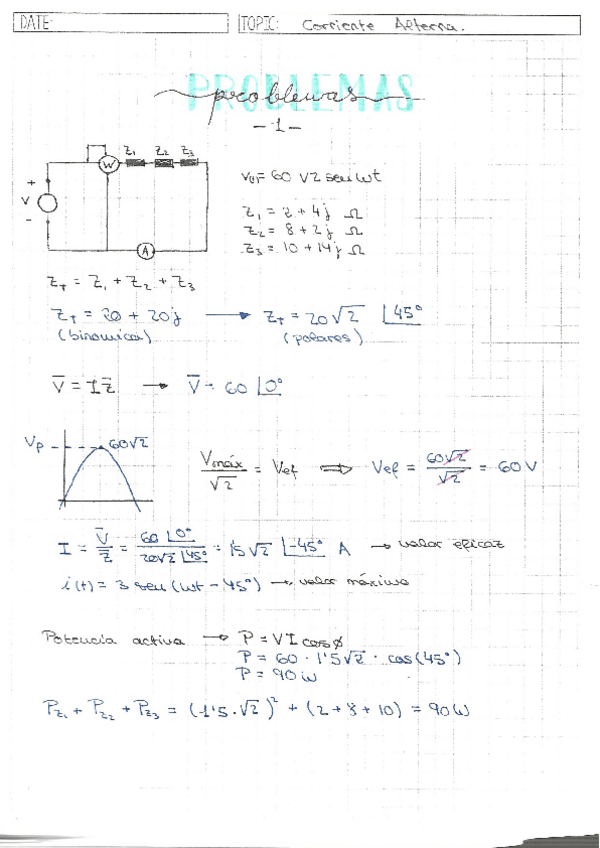 DATE: TOPIC: Corriente Alterna.
PROBLEMAS
problemas
-1-
Z₁ Z₂ Z₃
W
+
V
-
A
v(t)= 60 √2 sen wt
Z₁ = 2 + 4j Ω
Z₂ = 8 + 2j Ω
Z₃ = 10 + 14j Ω
Z_T = Z₁ + Z₂ + Z₃
Z_T = 20 + 20j → Z_T = 20√2 ∠45°
(binomica) (polares)
V̄ = I Z̄ → V̄ = 60 ∠0°
Vp 60√2
Vmáx/√2 = Vef ⇒ Vef = 60√2/√2 = 60 V
I = V̄/Z̄ = 60 ∠0°/20√2 ∠45° = 1'5 √2 ∠-45° A → valor eficaz
i(t) = 3 sen (wt - 45°) → valor máximo
Potencia activa → P = V I cos ø
P = 60 · 1'5 √2 · cos (45°)
P = 90 w
P_Z₁ + P_Z₂ + P_Z₃ = (1'5 · √2)² + (2 + 8 + 10) = 90 w